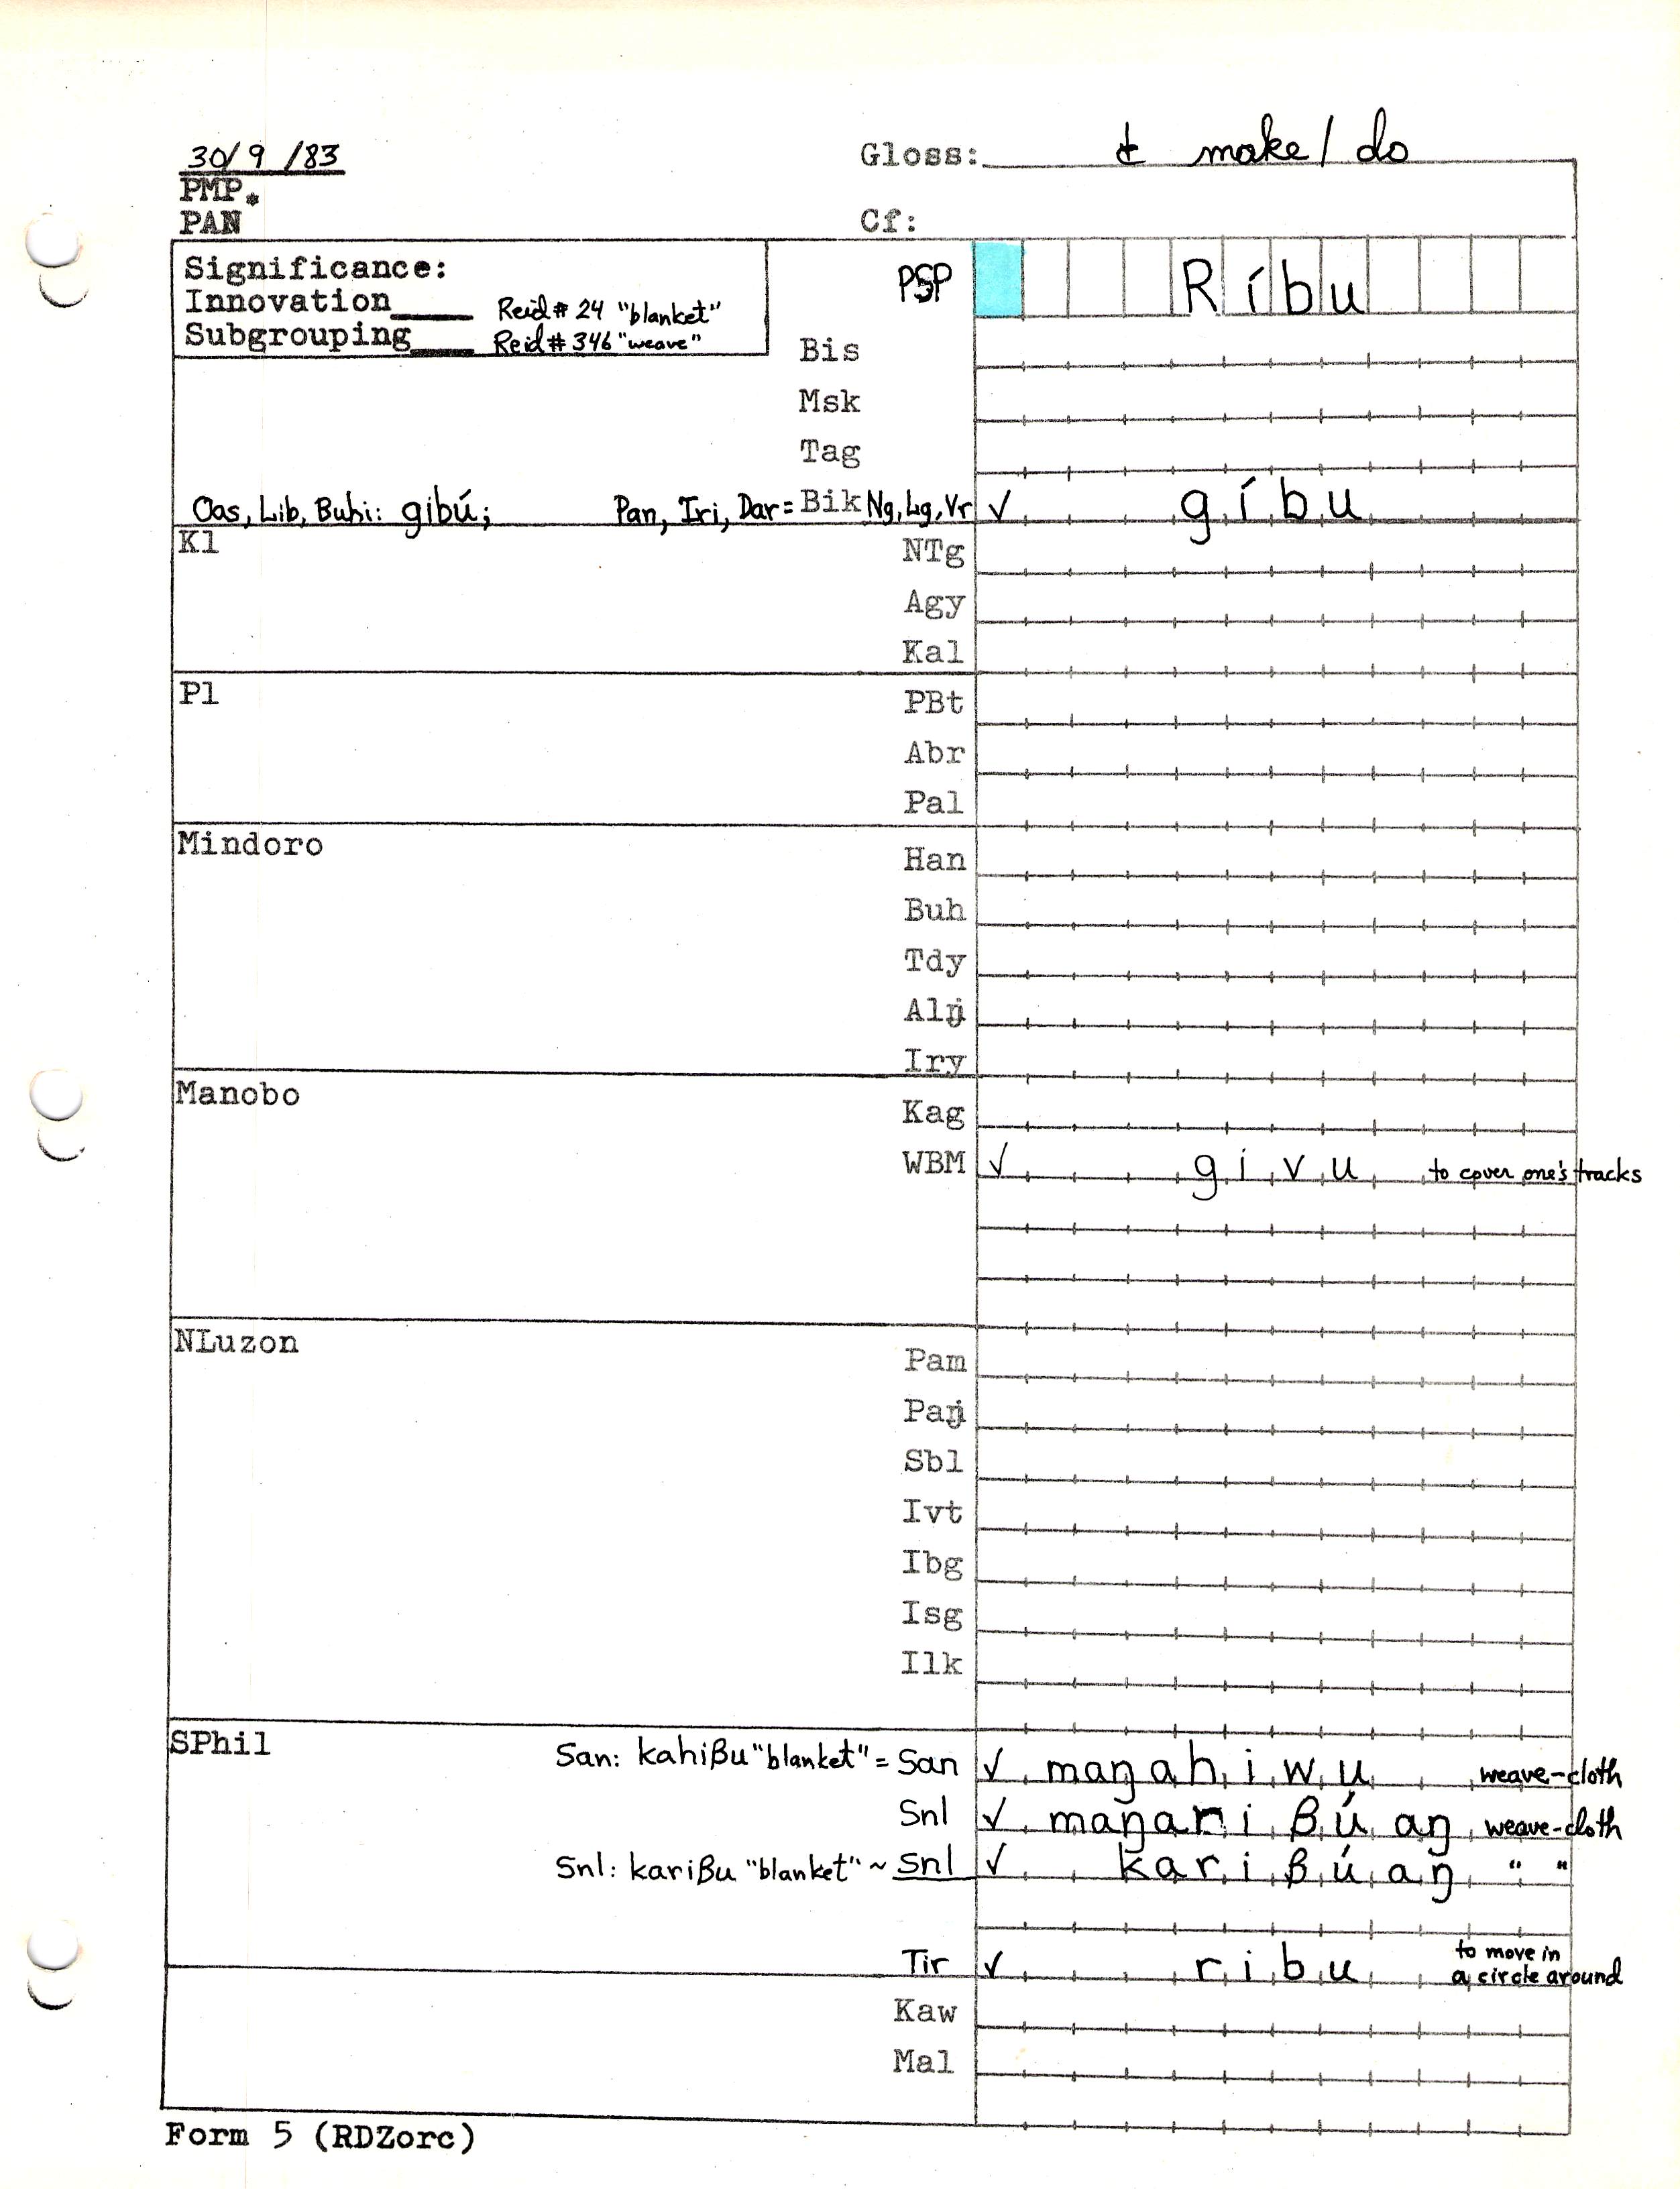 30/9/83
Gloss: & make/do
PMP *
PAN
Cf:
Significance:
PSP Ríbu
Innovation____ Reid# 24 "blanket"
Subgrouping____ Reid# 346 "weave"
Bis
Msk
Tag
Oas, Lib, Buhi: gibú; Pan, Iri, Dar = Bik Ng, Lg, Vr ✓ gíbu
Kl
NTg
Agy
Kal
Pl
PBt
Abr
Pal
Mindoro
Han
Buh
Tdy
Alŋ
Iry
Manobo
Kag
WBM ✓ givu to cover one's tracks
NLuzon
Pam
Paŋ
Sbl
Ivt
Ibg
Isg
Ilk
SPhil
San: kahiβu "blanket" = San ✓ maŋahiwu weave-cloth
Snl ✓ maŋariβúaŋ weave-cloth
Snl: kariβu "blanket" ~ Snl ✓ kariβúaŋ " "
Tir ✓ ribu to move in a circle around
Kaw
Mal
Form 5 (RDZorc)